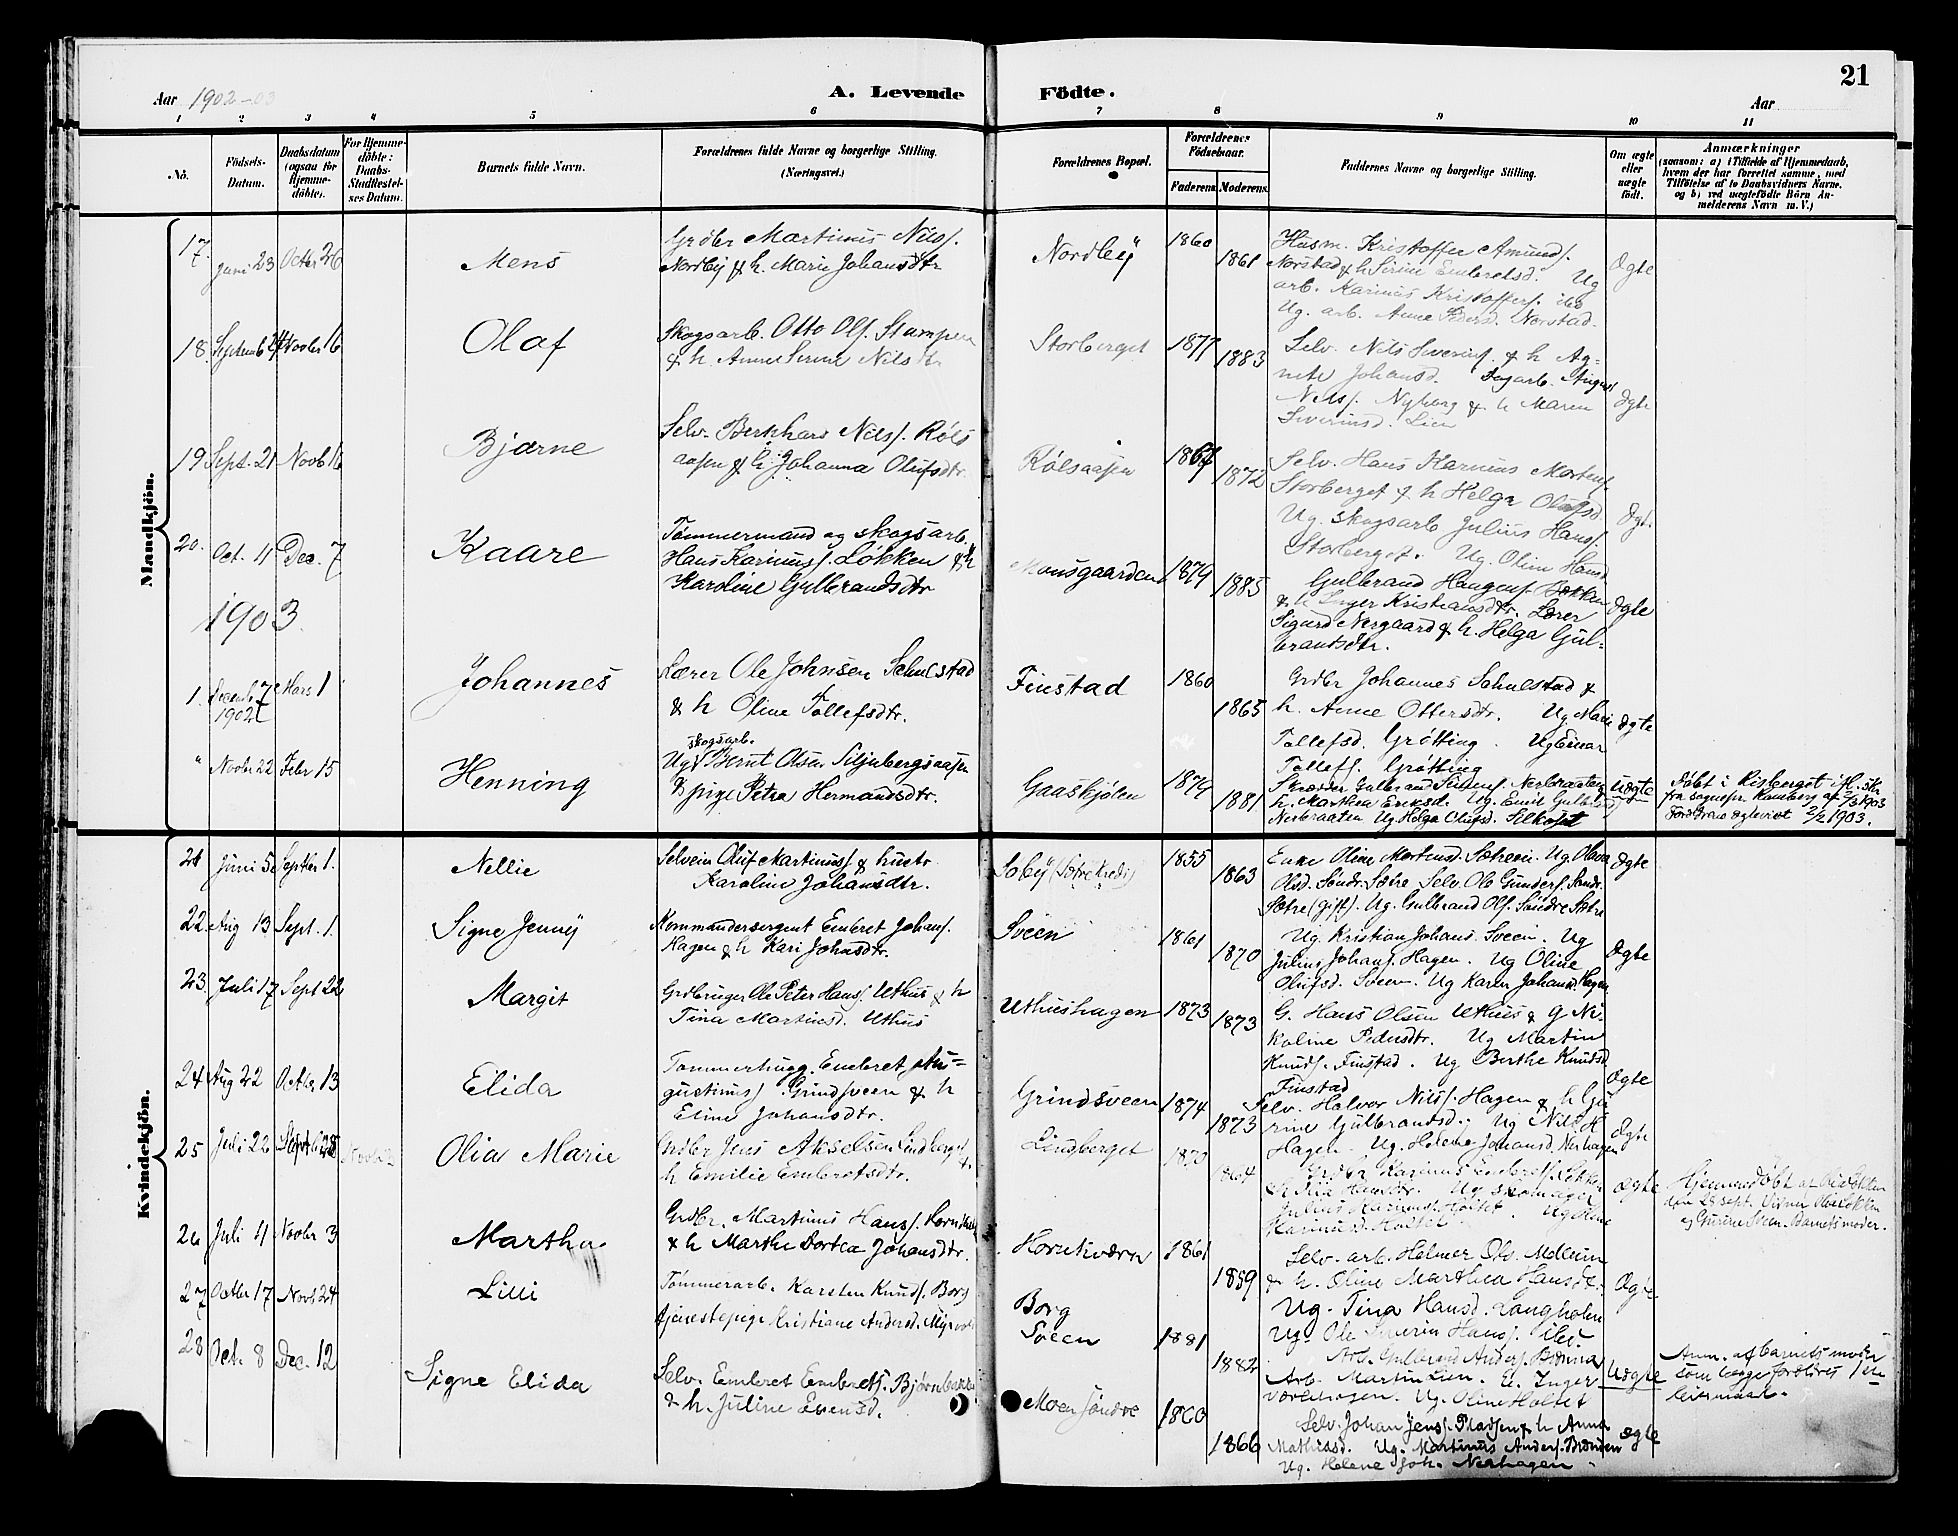 21
Aar 1902-03
A. Levende Födte.
Aar
1 2 3 4 5 6 7 8 9 10 11
No.
Födsels-
Datum.
Daabsdatum
(ogsaa for
Hjemme-
döbte).
For Hjemme-
döbte:
Daabs-
Stadfæstel-
ses Datum.
Barnets fulde Navn.
Forældrenes fulde Navne og borgerlige Stilling.
(Næringsvei.)
Forældrenes Bopæl.
Forældrenes
Födselsaar.
Faderens. Moderens.
Faddernes Navne og borgerlige Stilling.
Om ægte
eller
uægte
födt.
Anmærkninger
(saasom: a) i Tilfælde af Hjemmedaab,
hvem der har forrettet samme, med
Tilföielse af to Daabsvidners Navne.
og b) ved uægtefödte Börn An-
melderens Navn m. V.)
Mandkjön.
17. Juni 23 Octbr 26
Mens
Grdbr Martinus Nilsf.
Nordby & h. Marie Johansdtr
Nordby
1860
1861
Husm. Kristoffer Amundf.
Norstad & h Sirine Embretsd. Ug
arb. Karinus Kristoffersf. ibd
Ug. arb. Anne Pedersd. Norstad.
Ægte
18. Septemb 24 Novbr 16
Olaf
Skogsarb. Otto Olf. Stumpen
& h. Anne Serine Nilsdtr
Storberget
1877
1883
Selv. Nils Severinf. & h Ag-
nete Johansd. Dagarb. August
Nilsf. Nyborg & h Maren
Severinsd. Lien
Ægte
19 Sept. 21 Novb 16
Bjarne
Selv. Berhhard Nilsf. Röls
aasen & h. Johanna Olufsdtr.
Rölsaasen
1867
1872
Selv. Hans Karinus Mortenf.
Storberget & h Helga Olufsd
Ug. skogsarb. Julius Hansf.
Storberget. Ug Oline Hansd
Ægt.
20. Oct. 11 Dec. 7
Kaare
Tömmermand og skogsarb.
Hans Karinusf. Lökken & h
Karoline Gulbrandsdtr
Monsgaarden
1879
1885
Gulbrand Haagensf. Bækken
& h Inger Kristiansdtr. Lærer
Sigurd Nergaard & h. Helga Gul-
brandsdtr.
Ægte
1903.
1. Decemb 7 Mars 1
1902
Johannes
Lærer Ole Johnsen Sætulstad
& h Oline Tollefsdtr.
Finstad
1860
1865
Grdbr Johannes Sætulstad &
h. Anne Ottersdtr. Ug Marie
Tollefsd. Grötting. Ug Einar
Tollefs. Grötting
Ægte
" Novbr 22 Febr 15
Henning
skogsarb.
Ug Bernt Olsen Siljubergsaasen
& pige Petra Hermandsdtr.
Gaaskjölen
1879
1881
Skræder Gulbrand Simenf. Nerbraaten
h. Marthea Eriksd. Ug. Emil Gulbrd
Nerbraaten Ug. Helga Olufsd. Silkoset
Uægte
Döbt i Risberget ifl. skr
fra sognepr. Ramberg af 2/3 1903
Foreldrene ægteviet 2/2 1903.
Kvindekjön.
21 Juni 5 Septbr 1.
Nellie
Selveier Oluf Martinusf. & hustr.
Karoline Johansdtr.
Soby (Sætre Nedre)
1855
1863
Enke Oline Mortensd. Sætreen. Ug. Olava
Olsd. Söndr. Sætre Selv. Ole Gunderf. Sondr.
Sætre (gift). Ug. Gulbrand Olf. Söndre Sætre
Ægte
22 Aug 13 Sept. 1.
Signe Jenny
Kommandersergent Embret Johanf.
Hagen & h Kari Johnsdtr.
Sveen
1861
1870
Ug. Kristian Johans. Sveen. Ug
Julius Johanf. Hagen. Ug Oline
Olufsd. Sveen. Ug Karen Johansd. Hagen
Ægte
23 Juli 17 Sept 22
Margit
Grdbruger Ole Peter Hansf. Uthus & h
Tina Martinsd. Uthus
Uthushagen
1873
1873
G. Hans Olsen Uthus & g Ni-
koline Pedersdtr. Ug Martin
Knudsf. Finstad. Ug Berthe Knudsd
Finstad
Ægte
24 Aug 22 Octbr 13
Elida
Tømmerhugg. Embret Au-
gustinusf Grindsveen & h
Eline Johansdtr.
Grindsveen
1874
1873
Selv. Halvor Nilsf. Hagen & h Gu
rine Gulbrandsd. Ug Nils H
Hagen. Ug. Helene Johansd. Nerhagen
Ægte
25 Juli 22 Septb 28
Olia Marie
Grdbr Jens Akselsen Lindberget &
h Emilie Embretsdtr.
Lindberget
1870
1864
Grdbr Karinus Embretsf. Løkken
Ug skomager
Julius Karinusf. Holtet. Ug Oline
Karinusd. Holtet
Ægte
Hjemmedöbt af Olia Løkken
den 28 sept. Vidner Olia Løkken
og Gurine Sveen. Barnets moder.
26 Juli 4 Novbr 3
Martha
Grdbr. Martinus Hansf. Hornkværn
& h Marthe Dortea Johansdtr.
Hornkværn
1861
1859
Selv. arb. Helmer Olv. Mellum
& h. Oline Marthea Hansdt.
Ug. Tina Hansd. Langholen
Ug. Ole Severin Hansf. ibd
Ægte
27 Octbr 17 Novb 24
Lilli
Tömmerarb. Karsten Knudf. Borg
tjenestepige Kristiane Andersd. Myrvold
Borg
Sveen
1881
1882
Arb. Gulbrand Andersf. Brænna
Arb. Martinsen. E. Inger
Ug. Oline Holtet
Uægte
Anm. af barnets moder
som begge forældres 1ste
leiermaal.
28 Oct. 8 Dec. 12
Signe Elida
Selv. Embret Embretf. Björnbakke
& h. Juline Evensd.
Moen Söndre
1860
1866
Selv. Johan Jensf. Pladsen & h Anna
Mathiasd. Ug. Martinus Andersf. Brænden
Ug. Helene Joh. Nerhagen
Ægte